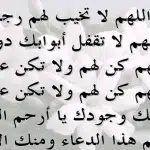 اللهم لا تخيب لهم رجـ
هم لا تقفل أبوابك دو
هم كن لهم ولا تكن عـ
م كن لهم ولا تكن عـ
ك وجودك يا أرحم الـ
م هذا الدعاء ومنك الـ